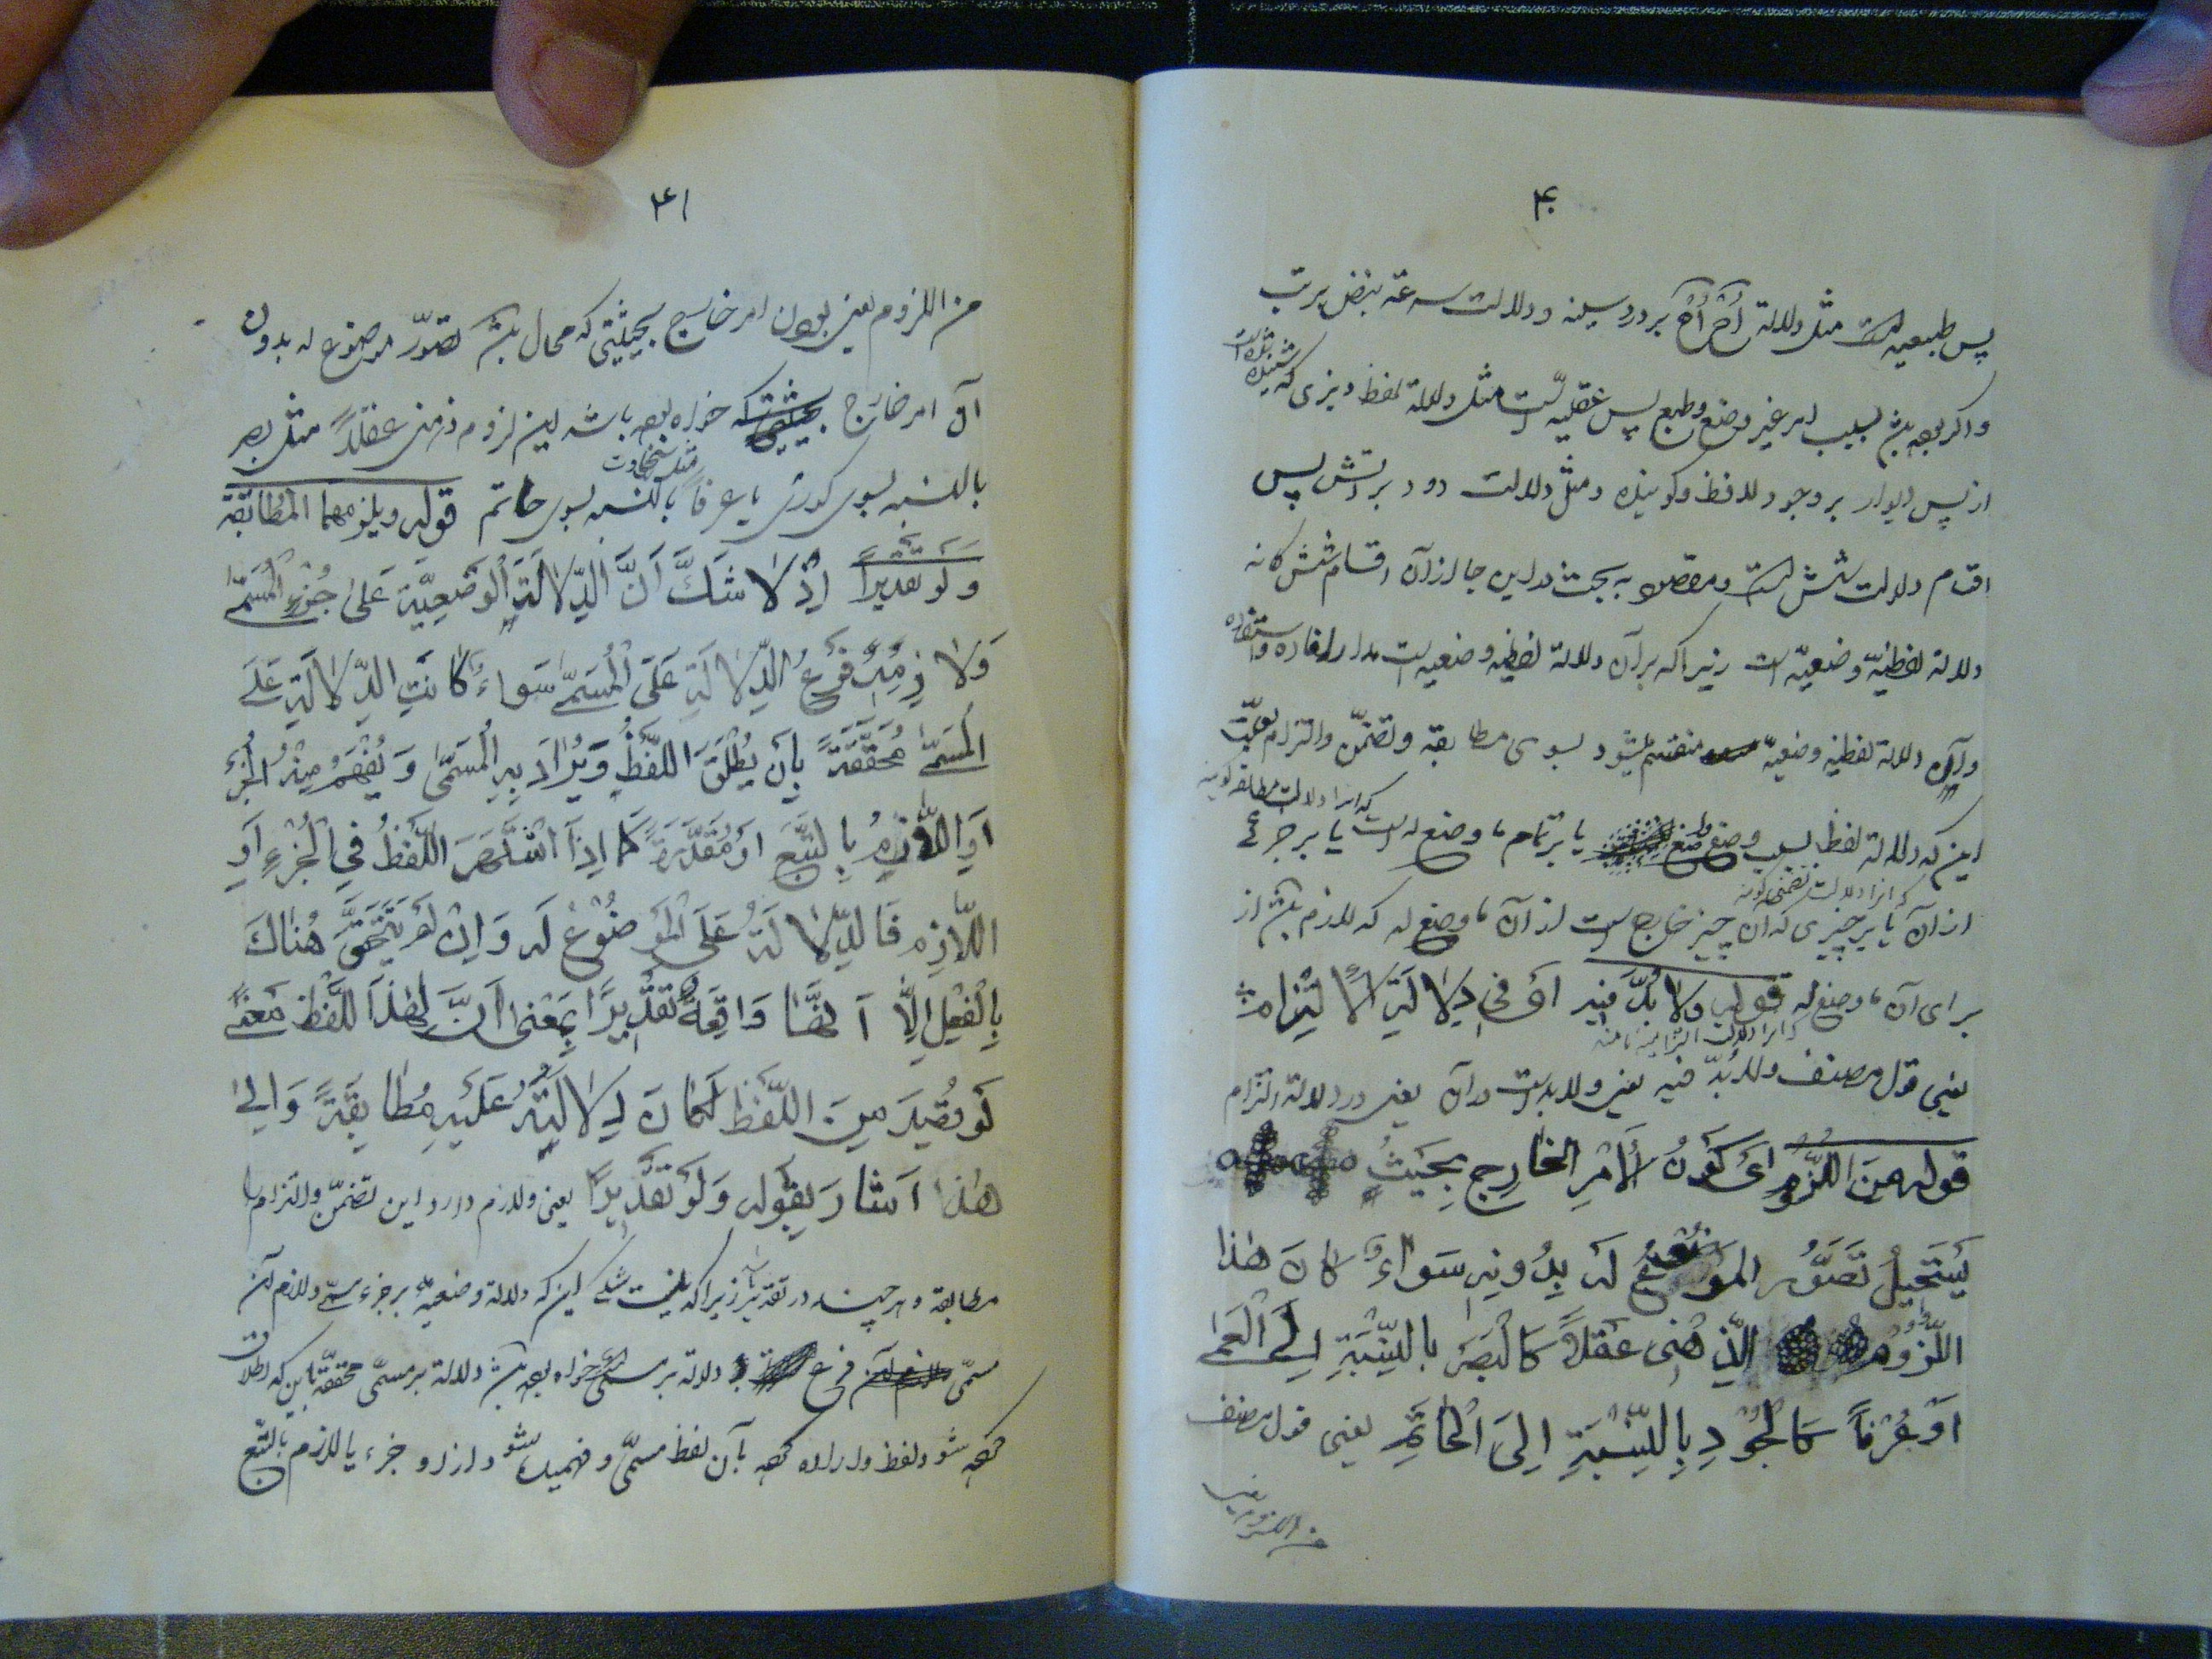 ۴۰
پس طبیعیه است مثل دلالة اُحْ اُحْ بر درد سینه و دلالت سرعة نبض بر تب
و اگر بوده باشد بسبب امر غیر وضع و طبع پس عقلیه است مثل دلالة لفظ دیزی که شنیده شده است
از پس دیوار بر وجود لافظ و گوینده و مثل دلالت دود بر آتش پس
اقسام دلالت شش است و مقصود به بحث در این جا از آن اقسام شش گانه
دلالة لفظیّه وضعیّه است زیرا که بر آن دلالة لفظیه وضعیه است مدار افاده و استفاده
و این دلالة لفظیه وضعیّه منقسم میشود بسوی مطابقه و تضمّن و التزام بعلّت
این که دلالة لفظ بسبب وضع واضع یا بر تمام ما وضع له است که آنرا دلالت مطابقه گویند یا بر جزئی
از آن که آنرا دلالت تضمنی گویند یا بر چیزی که آن چیز خارج است از آن ما وضع له که لازم باشد از
برای آن ما وضع له قوله ولا بُدَّ فیه ای فی دِلالَةِ الاِلتِزامِ
که آنرا دلالت التزامیه نامند
یعنی قول مصنف ولابُدّ فیه یعنی ولابد است در آن یعنی در دلالة التزام
قوله مِنَ اللُّزُومِ ای کَونُ الأَمْرِ الخارِجِ بِحَیثُ
یَستَحیلُ تَصَوُّرُ المَوضُوعِ لَهُ بِدُونِهِ سَواءٌ کانَ هذا
اللُّزُومُ الذِّهنی عَقلاً کَالْبَصَرِ بالنِّسْبَةِ اِلَی الْعَمی
اَوْ عُرْفاً کَالجُودِ بِالنِّسْبَةِ اِلَی الْحاتَمِ یعنی قول مصنف
من اللزوم یعنی
۴۱
من اللزوم یعنی بودن امر خارج بحیثیتی که محال باشد تصوّر موضوع له بدون
آن امر خارج که خواه بوده باشد این لزوم ذهنی عقلاً مثل بصر
بالنسبه بسوی کوری یا عرفاً مثل سخاوت بالنسبه بسوی حاتم قوله ویلزمهما المُطابَقة
ولو تَقدیراً اِذْ لا شَکَّ اَنَّ الدِّلالَةَ الوَضعِیَّةَ عَلی جُزْءِ الْمُسَمّی
وَلازِمِهِ فَرْعُ الدِّلالَةِ عَلَی الْمُسَمّی سَواءٌ کانَتِ الدِّلالَةِ عَلَی
المُسَمّی مُحَقَّقَةً بِاَن یُطْلَقَ اللَّفْظُ وَیُرادَ بِهِ الْمُسَمّی وَیُفْهَمُ مِنْهُ الجُزْءُ
اَوِ اللّازِمُ بِالتَّبَعِ اَوْ مُقَدَّرَةً کَما اِذَا اشْتَهَرَ اللَّفْظُ فِی الْجُزْءِ اَوِ
اللّازِمِ فَالدِّلالَةُ عَلَی الْمَوضُوعِ لَه وَاِنْ لَمْ یَتَحَقَّقْ هُناکَ
بِالْفِعْلِ اِلّا اَنَّها واقِعَةٌ تَقْدیرًا بِمَعْنی اَنَّ لِهٰذَا اللَّفْظِ مَعْنًی
لَو قُصِدَ مِنَ اللَّفْظِ لَکانَ دِلالَتُهُ عَلَیهِ مُطابِقَةً وَاِلی
هٰذا اَشارَ بِقَولِه وَلَوْ تَقْدیرًا یعنی و لازم دارد این تضمّن و التزام با
مطابقه و هر چند در تقدیر باشد زیرا که نیست شک این که دلالة وضعیه بر جزء مسمّی و لازم آن
مسمّی فرع دلالة بر مسمّی است خواه بوده باشد دلالة بر مسمّی محققّة باین که اطلاق
کرده شود لفظ و اراده کرده بآن لفظ مسمّی و فهمیده شود از او جزء یا لازم بالتّبع